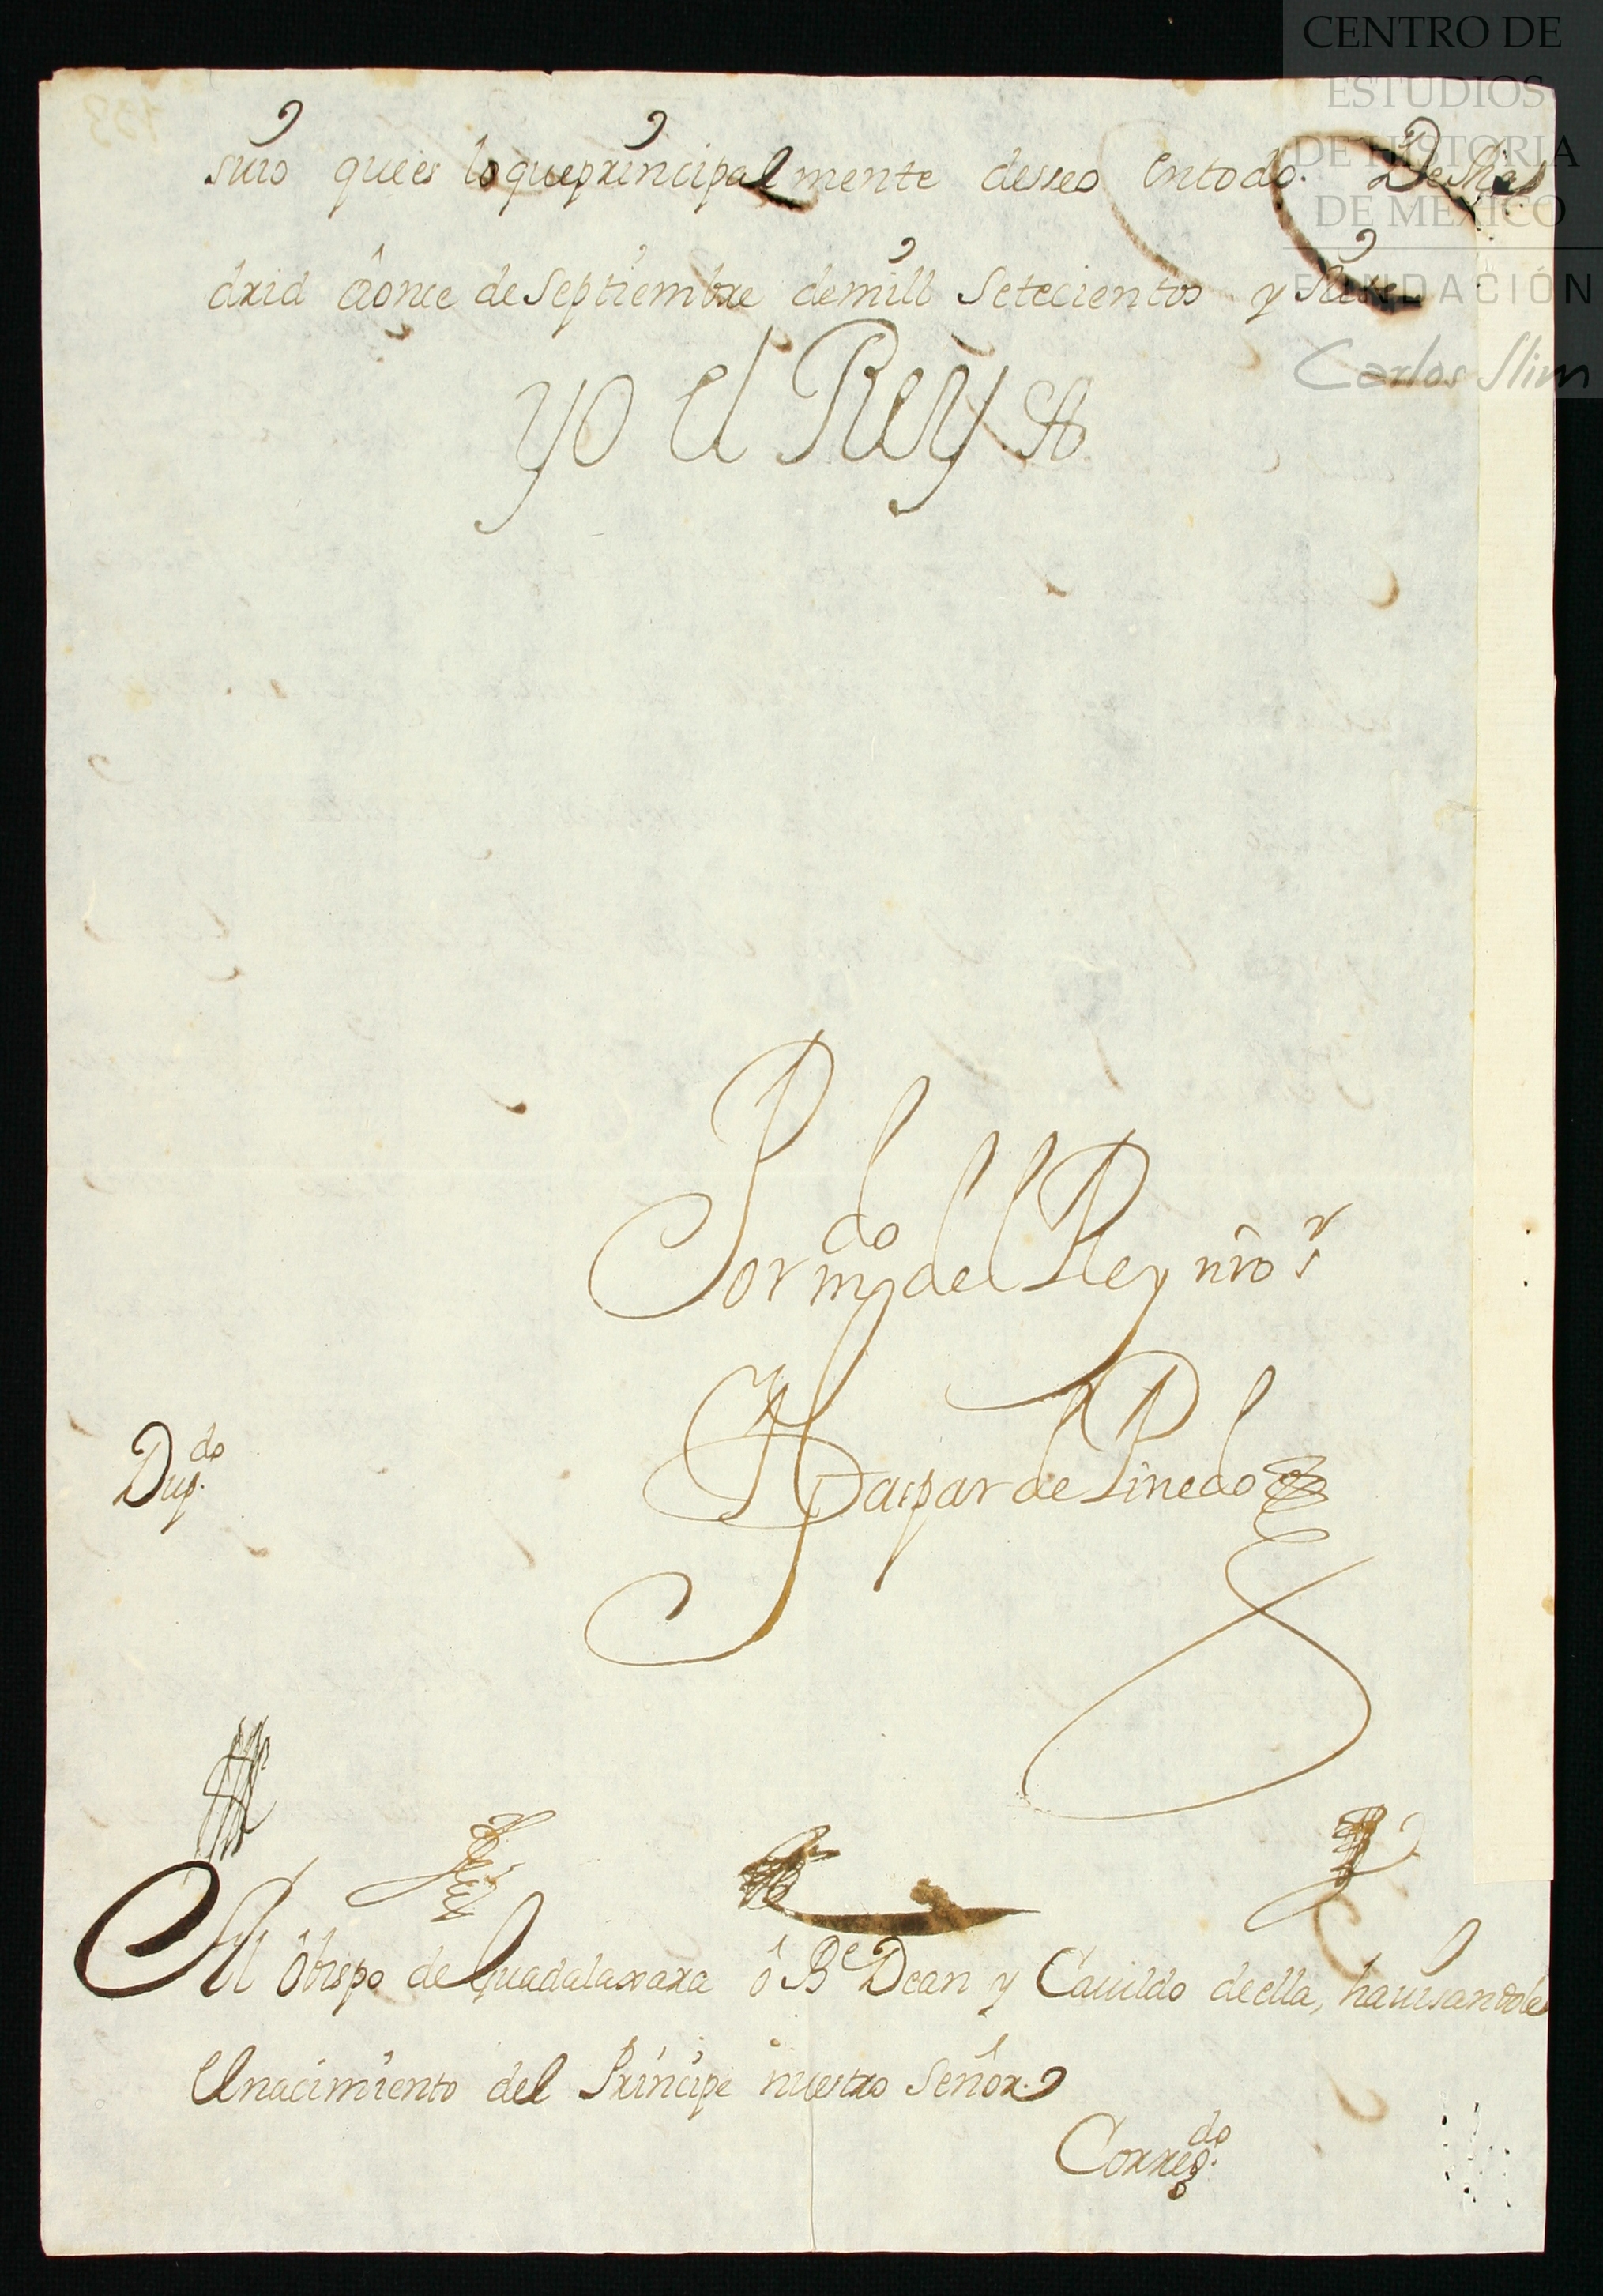 CENTRO DE
ESTUDIOS
DE HISTORIA
DE MÉXICO
FUNDACIÓN
Carlos Slim
suio que es loque principalmente desseo entodo. De Ma
drid â once de Septiembre demill Setecientos y Siete
yo el Rey
Por mdo del Rey nro sr
Gaspar de Pinedo
Dupdo.
Al Obispo de Guadalaxara ô Be Dean y Cauildo deella, hauisandole
El nacimiento del Principe nuestro Señor.
Corregdo.